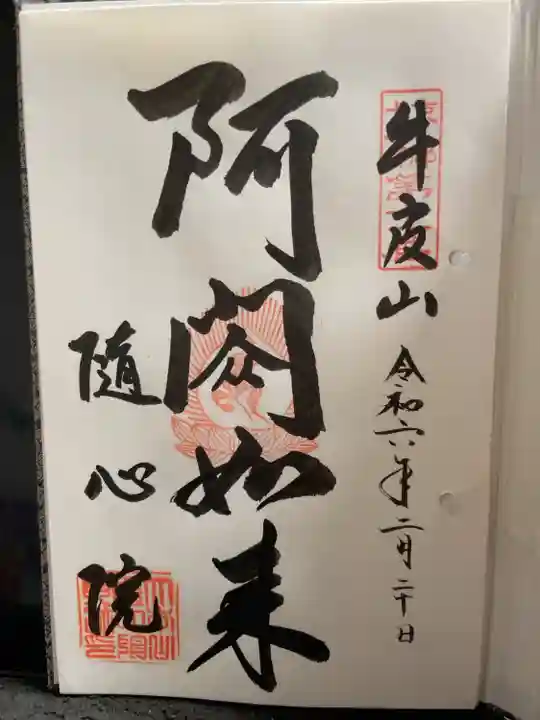 牛皮山
令和六年二月二十日
阿閦如来
随心院